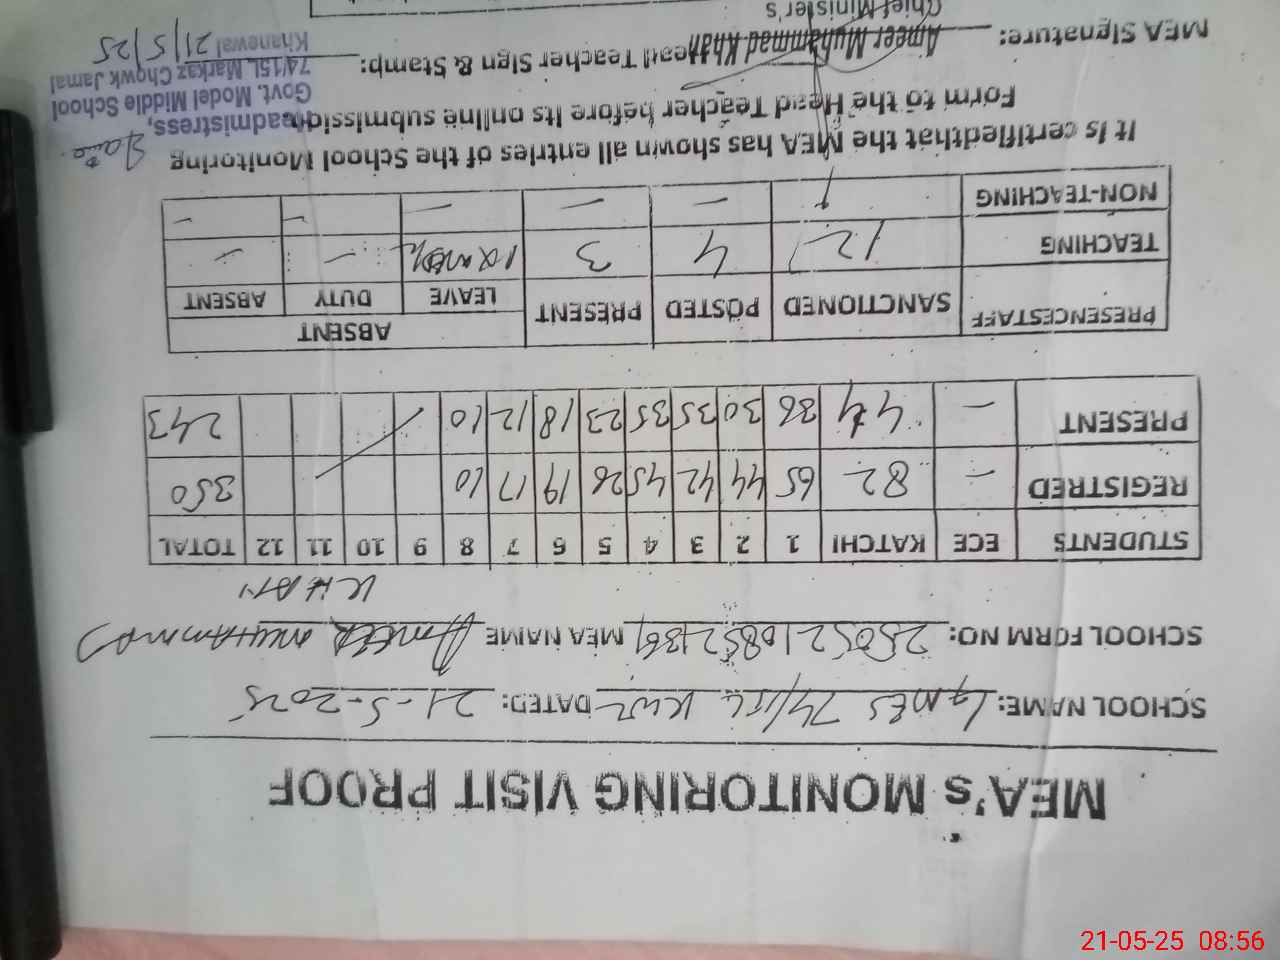 MEA's MONITORING VISIT PROOF
SCHOOL NAME: GGMES 74/15L KWL DATED: 21-5-2025
SCHOOL FORM NO: MEA NAME AMEER MUHAMMAD
KHAN
STUDENTS ECE KATCHI 1 2 3 4 5 6 7 8 9 10 11 12 TOTAL
REGISTRED - 82 65 44 42 45 26 19 17 10 350
PRESENT - 44 36 30 35 35 23 18 12 10 243
PRESENCESTAFF SANCTIONED POSTED PRESENT ABSENT
LEAVE DUTY ABSENT
TEACHING 12 4 3 1 - -
NON-TEACHING 1 - - - - -
It is certifiedthat the MEA has shown all entries of the School Monitoring
Form to the Head Teacher before its online submission.
MEA Signature: Ameer Muhammad Khan Head Teacher Sign & Stamp:
Chief Minister's
Headmistress,
Govt. Model Middle School
74/15L Markaz Chowk Jamal
Khanewal
21/5/25
21-05-25 08:56